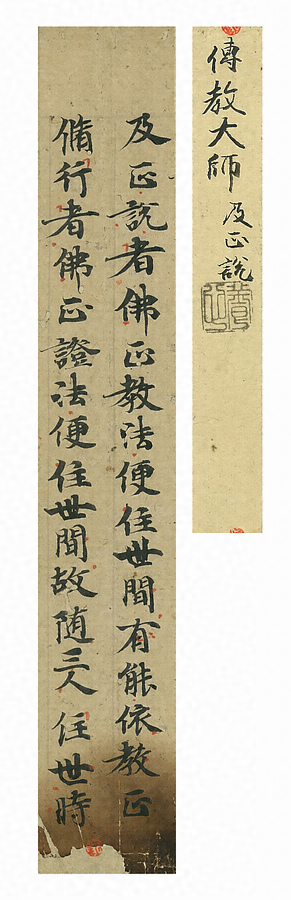 傳教大師 及正說
及正說者佛正教法便住世間有能依教正
脩行者佛正證法便住世間故随三人住世時